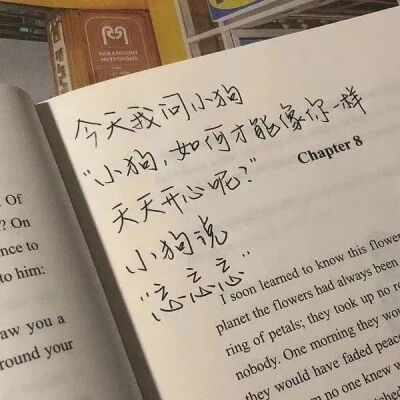 PARAMOUNT
METROPOLIS
今天我问小狗
"小狗,如何才能像你一样
天天开心呢?"
小狗说
"忘忘忘"
Of
? On
nce to
to him:
aw you a
round your
Chapter 8
I soon learned to know this flower
planet the flowers had always been
ring of petals; they took up no ro
nobody. One morning they wou
they would have faded peace
no one knew w